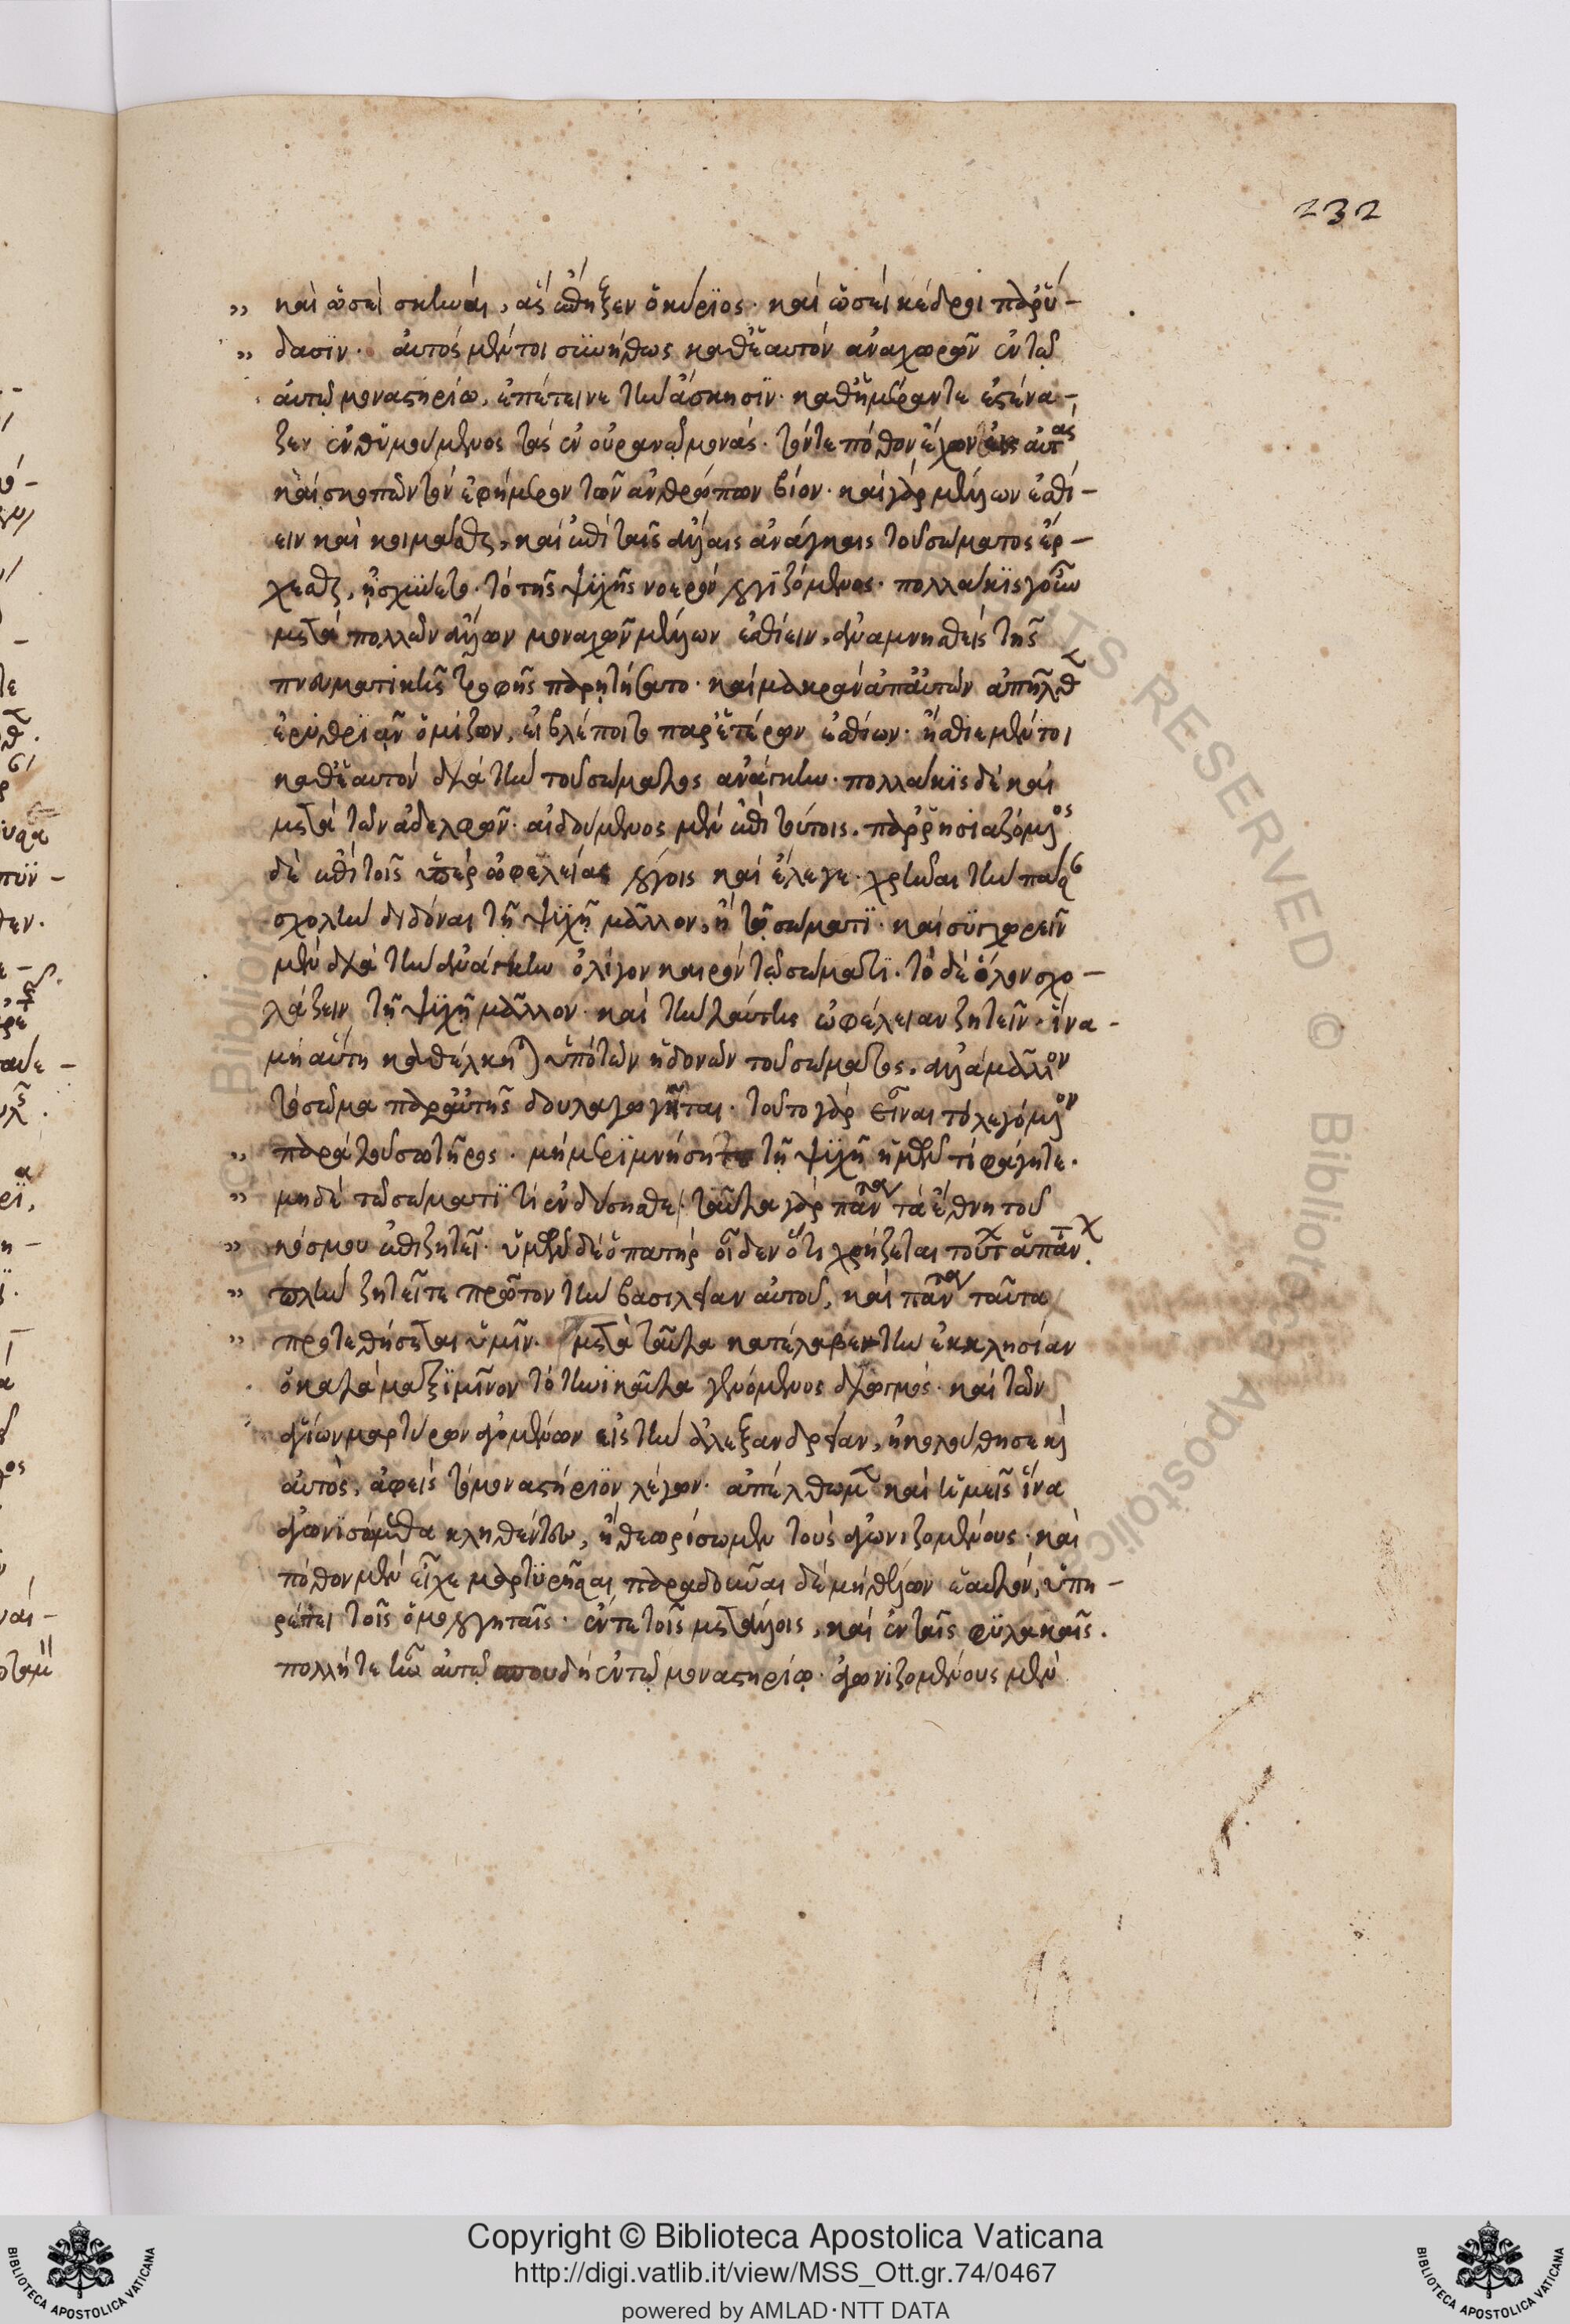 232
„ καὶ ὡσεὶ σκηναὶ, ἃς ἔπηξεν ὁ κύριος· καὶ ὡσεὶ κέδροι παρ' ὕ-
„ δασιν· αὐτὸς μέντοι συνήθως καθ' ἑαυτὸν ἀναχωρῶν ἐν τῶ
αὐτῶ μοναστηρίω, ἐπέτεινε τὴν ἄσκησιν· καθ' ἡμέραν τε ἐστένα-
ζεν ἐνθυμούμενος τὰς ἐν οὐρανῶ μονάς· τόν τε πόθον ἔχων εἰς αὐτας
καὶ σκοπῶν τὸν ἐφήμερον τῶν ἀνθρώπων βίον· καὶ γὰρ μέλλων ἐσθί-
ειν καὶ κοιμᾶσθαι, καὶ ἐπὶ ταῖς ἄλλαις ἀνάγκαις τοῦ σώματος ἔρ-
χεσθαι, ἠσχύνετο· τὸ τῆς ψυχῆς νοερὸν λογιζόμενος· πολλάκις γοῦν
μετὰ πολλῶν ἄλλων μοναχῶν μέλλων ἐσθίειν, ἀναμνησθεὶς τῆς
πνευματικῆς τροφῆς παρητήσατο· καὶ μακρὰν ἀπ' αὐτῶν ἀπῆλθε
ἐρυθριᾶν νομίζων, εἰ βλέποιτο παρ' ἑτέρων ἐσθίων· ἤσθιε μέντοι
καθ' ἑαυτὸν διὰ τὴν τοῦ σώματος ἀνάγκην· πολλάκις δὲ καὶ
μετὰ τῶν ἀδελφῶν· αἰδούμενος μὲν ἐπὶ τούτοις, παρρησιαζόμενος
δὲ ἐπὶ τοῖς ὑπὲρ ὠφελείας λόγοις καὶ ἔλεγε· χρῆναι τὴν πᾶσαν
σχολὴν διδόναι τῆ ψυχῆ μᾶλλον, ἢ τῶ σώματι· καὶ συγχωρεῖν
μὲν διὰ τὴν ἀνάγκην ὀλίγον καιρὸν τῶ σώματι· τὸ δὲ ὅλον σχο-
λάζειν τῆ ψυχῆ μᾶλλον· καὶ τὴν ταύτης ὠφέλειαν ζητεῖν· ἵνα
μὴ αὕτη καθέλκηται ὑπὸ τῶν ἡδονῶν τοῦ σώματος, ἀλλὰ μᾶλλον
τὸ σῶμα παρ' αὐτῆς δουλαγωγῆται· τοῦτο γὰρ εἶναι τὸ λεγόμενον
„ παρὰ τοῦ σωτῆρος· μὴ μεριμνήσητε τῆ ψυχῆ ὑμῶν τί φάγητε·
„ μηδὲ τῶ σώματι τί ἐνδύσησθε· ταῦτα γὰρ πάντα τὰ ἔθνη τοῦ
„ κόσμου ἐπιζητεῖ· ὑμῶν δὲ ὁ πατὴρ οἶδεν ὅτι χρήζεται τούτων ἁπάντων·
„ πλὴν ζητεῖτε πρῶτον τὴν βασιλείαν αὐτοῦ, καὶ πάντα ταῦτα
„ προστεθήσεται ὑμῖν· μετὰ ταῦτα κατέλαβεν τὴν ἐκκλησίαν
ὁ κατὰ μαξιμῖνον τὸ τηνικαῦτα γενόμενος διωγμός· καὶ τῶν
ἁγίων μαρτύρων ἀγομένων εἰς τὴν ἀλεξανδρείαν, ἠκολούθησε καὶ
αὐτὸς, ἀφεὶς τὸ μοναστήριον λέγων· ἀπέλθωμεν καὶ ἡμεῖς ἵνα
ἀγωνισόμεθα κληθέντες, ἢ θεωρίσωμεν τοὺς ἀγωνιζομένους· καὶ
πόθον μὲν εἶχε μαρτυρῆσαι παραδοῦναι δὲ μὴ θέλων ἑαυτὸν, ὑπη-
ρέτει τοῖς ὁμολογηταῖς· ἔν τε τοῖς μετάλλοις, καὶ ἐν ταῖς φυλακαῖς.
πολλή τε ἦν αὐτῶ σπουδὴ ἐν τῶ μοναστηρίω· ἀγωνιζομένους μὲν
Copyright © Biblioteca Apostolica Vaticana
http://digi.vatlib.it/view/MSS_Ott.gr.74/0467
powered by AMLAD·NTT DATA